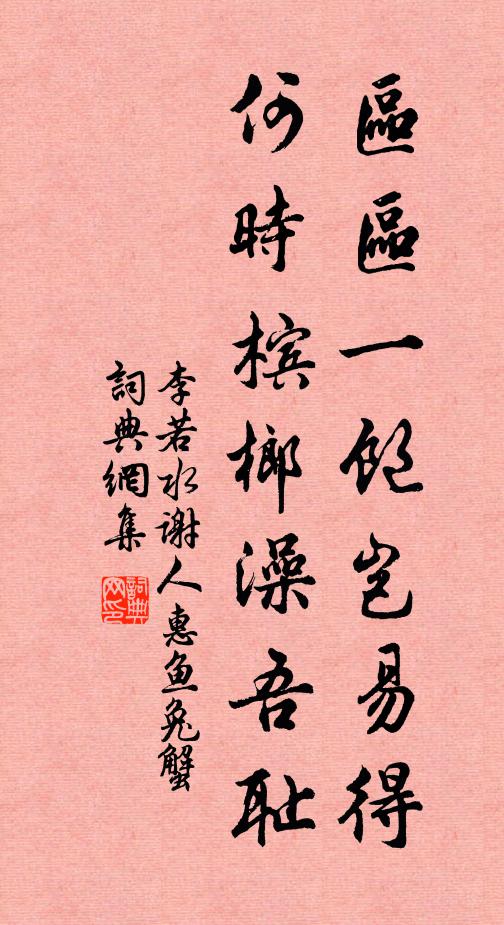 區區一飽豈易得
何時檳榔澡吾耻
李若水谢人惠鱼兔蟹
詞典網集
詞典網印